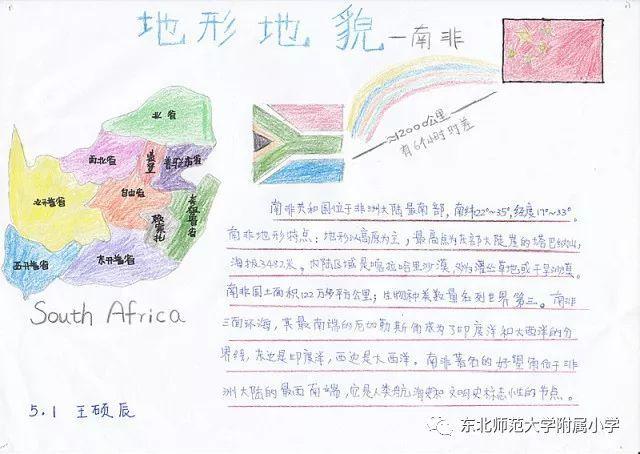 地形地貌—南非
≈12000公里
有6个小时时差
北省
南北省
普马兰省
自由省
北开普省
西开普省
东开普省
South Africa
南非共和国位于非洲大陆最南部,南纬22°~35°,经度17°~33°。
南非地形特点:地形以高原为主,最高点为东部大陡崖的塔巴纳山,
海拔3482米。内陆区域是喀拉哈里沙漠,多为灌丛草地或干旱沙漠。
南非国土面积122万多平方公里;生物种类数量名列世界第三。南非
三面环海,其最南端的厄加勒斯角成为了印度洋和大西洋的分
界线,东边是印度洋,西边是大西洋。南非著名的好望角位于非
洲大陆的最西南端,它是人类航海史和文明史标志性的节点。
5.1 王硕辰
东北师范大学附属小学